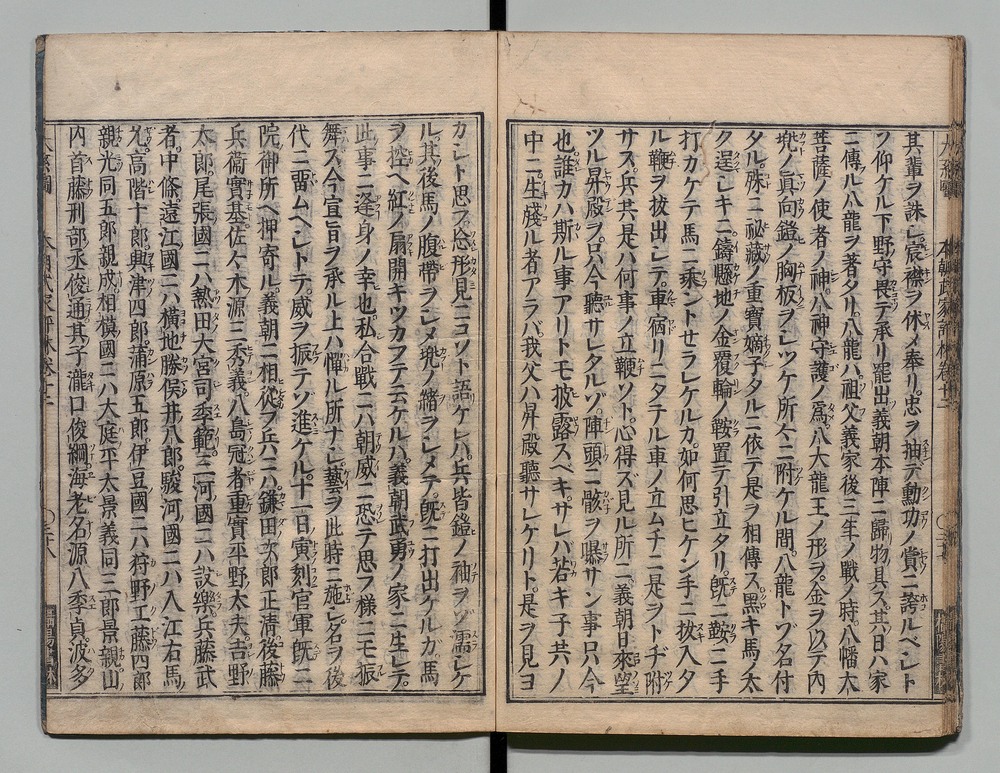 其輩ヲ誅シ宸襟ヲ休メ奉リ忠ヲ抽デ勲功ノ賞ニ誇ルベシト
ソ仰ケル下野守畏テ承リ罷出義朝本陣ニ歸物具ス其日ハ家
ニ傳ル八龍ヲ著タリ八龍ハ祖父義家後三年ノ戰ノ時八幡大
菩薩ノ使者ノ神八神守護ノ爲八大龍王ノ形ヲ金ヲ以テ内
兠ノ眞向鎧ノ胸板ヲシツケ所々ニ附ケル間八龍トゾ名付
タル殊ニ祕藏ノ重寶嫡子タルニ依テ是ヲ相傳ス黑キ馬太
ク逞シキニ鑄懸地ノ金覆輪ノ鞍置テ引立タリ既ニ鞍ニ手
打カケテ馬ニ乘ントセラレケルカ如何思ヒケン手ニ拔入タ
ル鞭ヲ拔出シテ車宿リニタテル車ノ立ムチニ是ヲトヂ附
サス兵共是ハ何事ノ立鞭ソト心得ズ見ル所ニ義朝日來望
ツル昇殿ヲ只今聽サレタルゾ陣頭ニ骸ヲ曝サン事只今
也誰カハ斯ル事アリトモ披露スベキサレバ若キ子共ノ
中ニ生殘ル者アラバ我父ハ昇殿聽サレケリト是ヲ見ヨ
カシト思フ念形見ニコソト語ケレバ兵皆鎧ノ袖ヲゾ濡シケ
ル其後馬ノ腹帶ヲシメ兠ノ緒ヲシメテ既ニ打出ケルカ馬
ヲ控ヘ紅ノ扇開キツカフテ云ケルハ義朝武勇ノ家ニ生レテ
此事ニ逢身ノ幸也私合戰ニハ朝威ニ恐テ思フ樣ニモ振
舞ス今宣旨ヲ承ル上ハ憚ル所ナシ藝ヲ此時ニ施シ名ヲ後
代ニ雷ムヘシトテ威ヲ振テソ進ケル十一日寅刻官軍既ニ
院御所ヘ押寄ル義朝ニ相從フ兵ニハ鎌田次郎正清後藤
兵衞實基佐々木源三秀義八島冠者重實平野太夫吉野
太郎尾張國ニハ熱田大宮司季範三河國ニハ設樂兵藤武
者中條遠江國ニハ橫地勝俣井八郎駿河國ニハ入江右馬
允高階十郎興津四郎蒲原五郎伊豆國ニハ狩野工藤四郎
親光同五郎親成相模國ニハ大庭平太景義同三郎景親山
内首藤刑部丞俊通其子瀧口俊綱海老名源八季貞波多